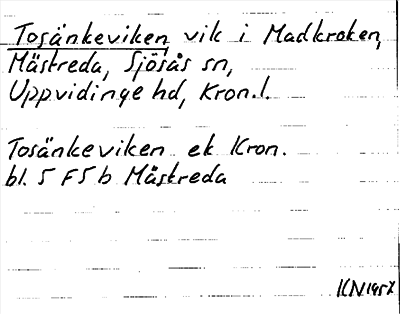 Tosänkeviken, vik i Madkroken,
Mästreda, Sjösås sn,
Uppvidinge hd, Kron.l.
Tosänkeviken ek Kron.
bl. 5 F5 b Mästreda
KN 1957